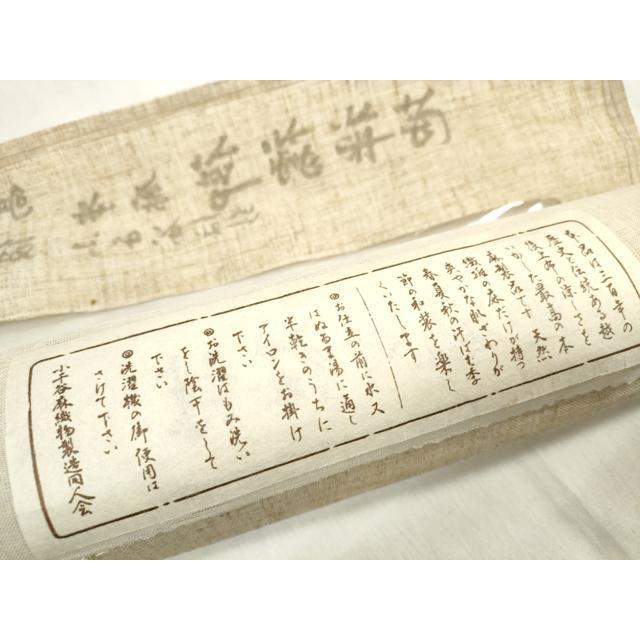 本品は三百年の
歴史と伝統ある越
後上布の味いさを
いかした最高の本
麻製品です 天然
繊維の麻だけが持つ
爽やかな肌ざわりが
春夏秋の汗ばむ季
節の和装を楽し
くいたします
◎お仕立の前に水又
はぬるま湯に通し
半乾きのうちに
アイロンをお掛け
下さい
◎お洗濯はもみ洗い
をし陰干をして
下さい
◎洗濯機の御使用は
さけて下さい
小千谷麻織物製造同人会